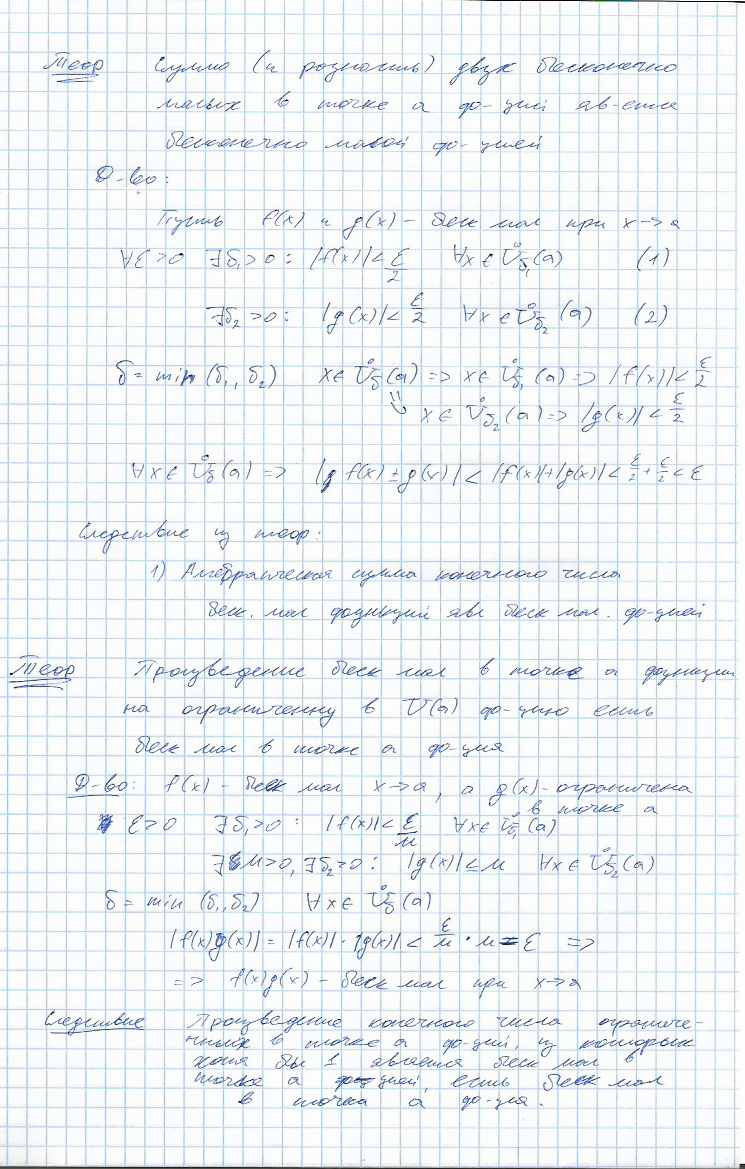 Теор Сумма (и разность) двух бесконечно
малых в точке a ф-ций яв-ется
бесконечно малой ф-цией
Д-во:
Пусть f(x) и g(x) – беск мал при x→a
∀ε>0 ∃δ₁>0: |f(x)|<ε/2 ∀x∈Ů_δ₁(a) (1)
∃δ₂>0: |g(x)|<ε/2 ∀x∈Ů_δ₂(a) (2)
δ = min (δ₁, δ₂) x∈Ů_δ(a) => x∈Ů_δ₁(a) => |f(x)|<ε/2
=> x∈Ů_δ₂(a) => |g(x)|<ε/2
∀x∈Ů_δ(a) => |f(x)±g(x)|<|f(x)|+|g(x)|<ε/2+ε/2<ε
Следствие из теор:
1) Алгебраическая сумма конечного числа
беск. мал функций явл беск мал. ф-цией
Теор Произведение беск мал в точке a функции
на ограниченну в U(a) ф-цию есть
беск мал в точке a ф-ция
Д-во: f(x) – беск мал x→a, а g(x)-ограничена
в точке a
ε>0 ∃δ₁>0: |f(x)|<ε/M ∀x∈Ů_δ₁(a)
∃M>0, ∃δ₂>0: |g(x)|≤M ∀x∈Ů_δ₂(a)
δ = min (δ₁, δ₂) ∀x∈Ů_δ(a)
|f(x)g(x)| = |f(x)|·|g(x)| < ε/M · M = ε =>
=> f(x)g(x) – беск мал при x→a
Следствие Произведение конечного числа ограниче-
нных в точке a ф-ций, из которых
хотя бы 1 является беск мал в
точке a ф-цией, есть беск мал
в точка a ф-ция.